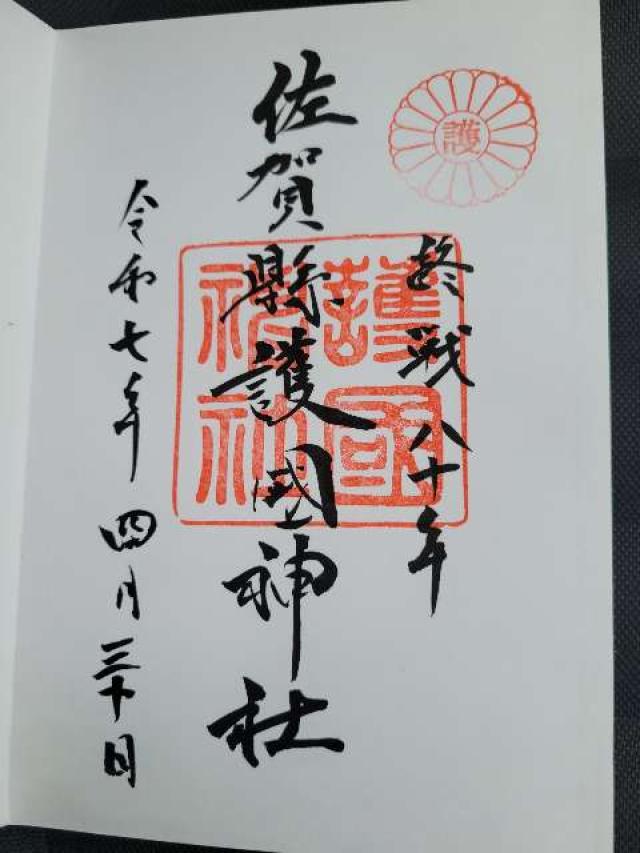 護
終戦八十年
佐賀縣護國神社
護國神社
令和七年四月三十日